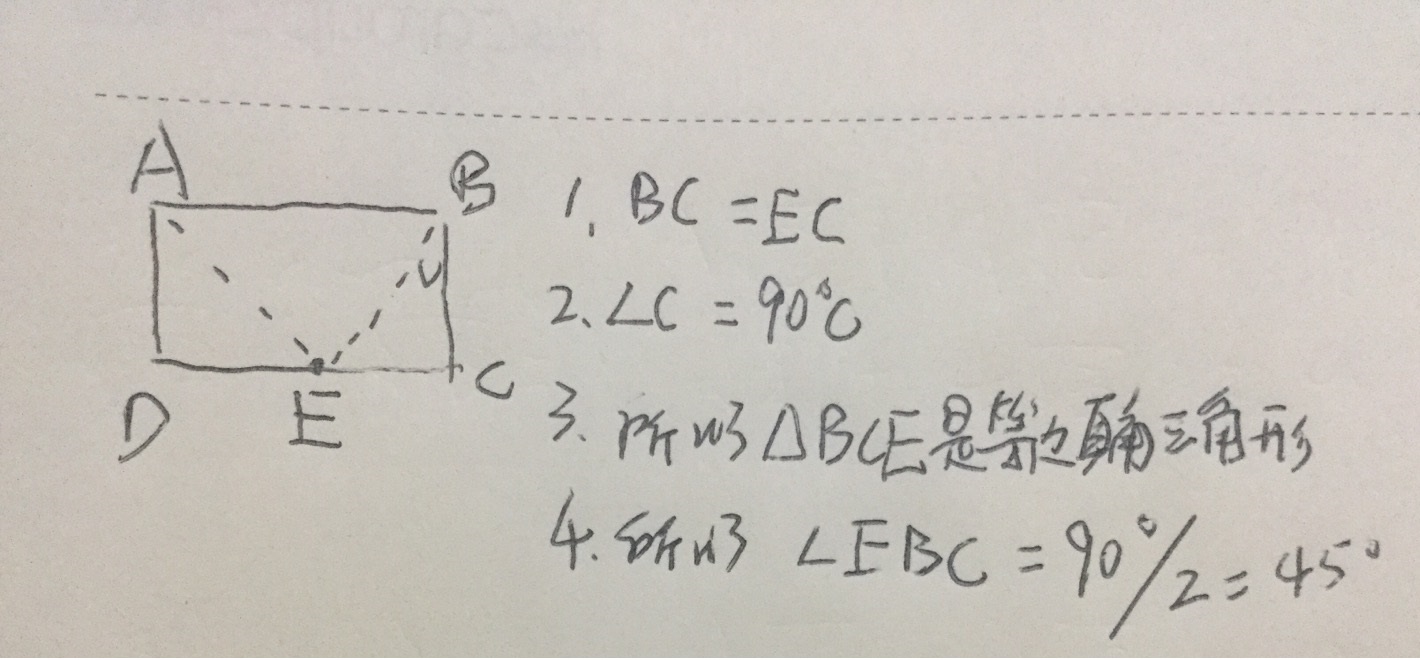 A
B
D
E
C
1. BC = EC
2. ∠C = 90°C
3. 所以△BCE是等边直角三角形
4. 所以 ∠EBC = 90°/2 = 45°